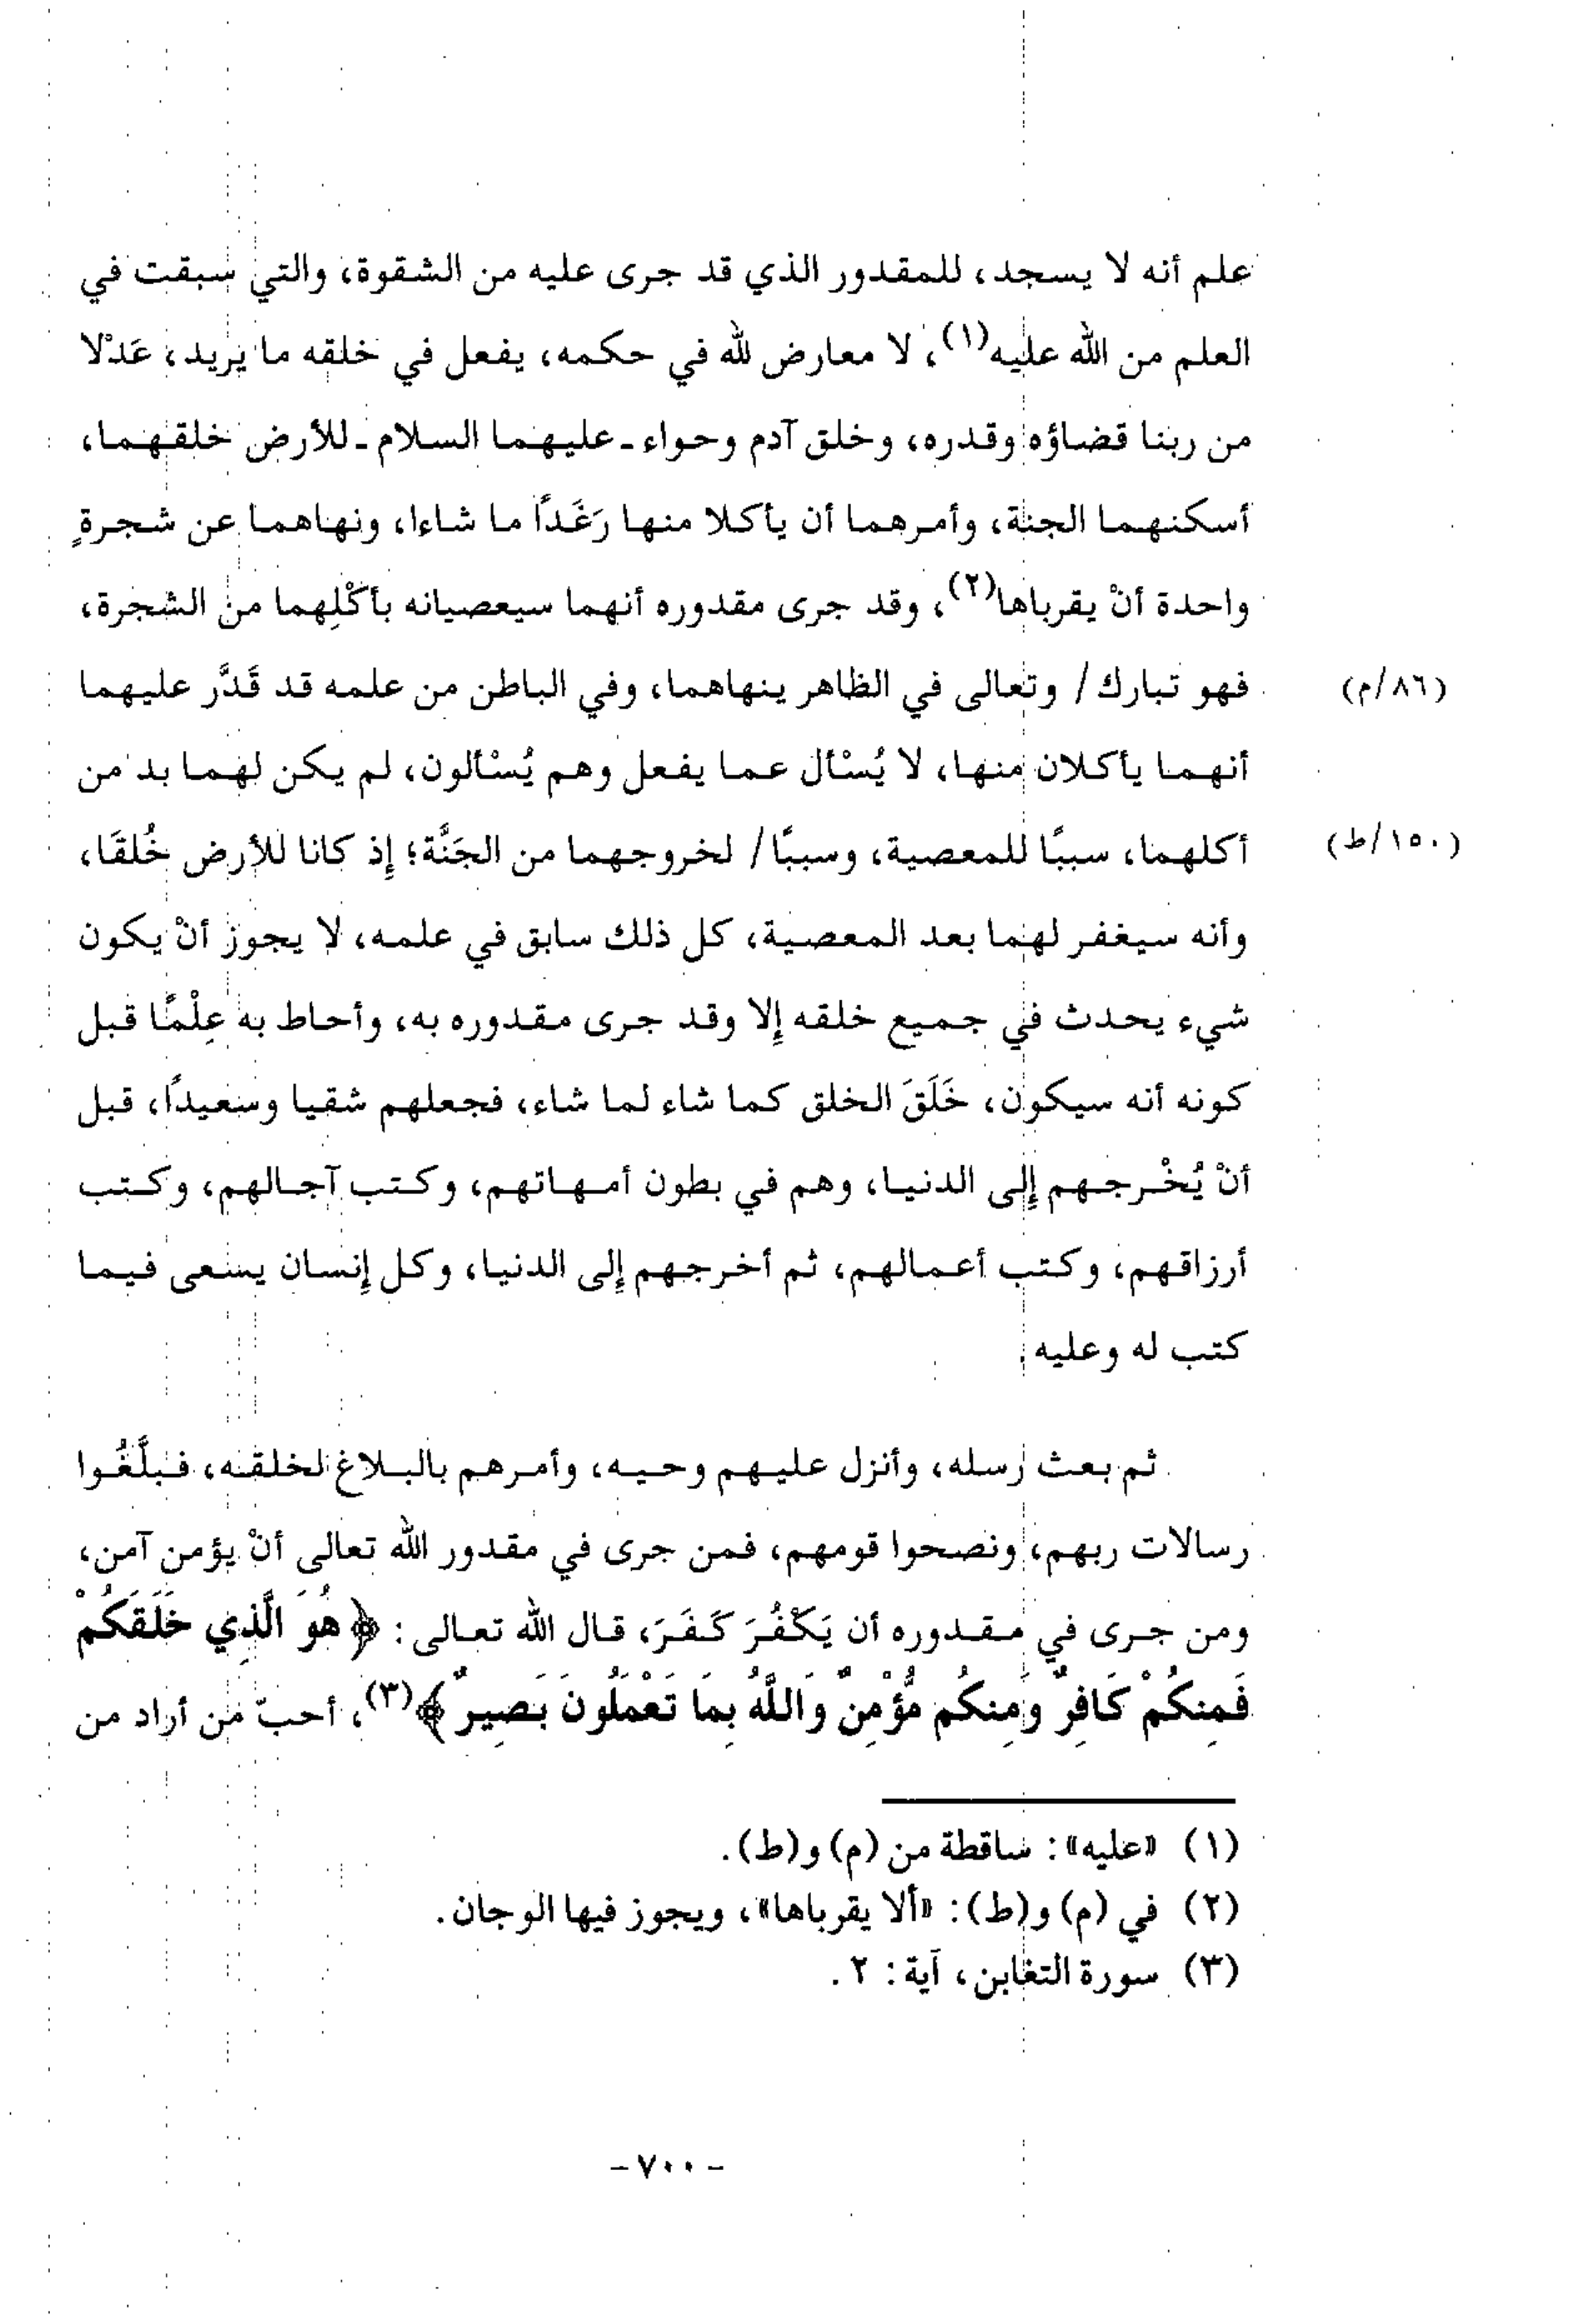 علم أنه لا يسجد، للمقدور الذي قد جرى عليه من الشقوة، والتي سبقت في
العلم من الله عليه(١)، لا معارض لله في حكمه، يفعل في خلقه ما يريد، عَدْلا
من ربنا قضاؤه وقدره، وخلق آدم وحواء ـ عليهما السلام ـ للأرض خلقهما،
أسكنهما الجنة، وأمرهما أن يأكلا منها رَغَدًا ما شاءا، ونهاهما عن شجرةٍ
واحدة أنْ يقرباها(٢)، وقد جرى مقدوره أنهما سيعصيانه بأكْلِهما من الشجرة،
فهو تبارك/ وتعالى في الظاهر ينهاهما، وفي الباطن من علمه قد قَدَّر عليهما
(٨٦/م)
أنهما يأكلان منها، لا يُسْأل عما يفعل وهم يُسْألون، لم يكن لهما بد من
أكلهما، سببًا للمعصية، وسببًا/ لخروجهما من الجَنَّة؛ إِذ كانا للأرض خُلقَا،
(١٥٠/ط)
وأنه سيغفر لهما بعد المعصية، كل ذلك سابق في علمه، لا يجوز أنْ يكون
شيء يحدث في جميع خلقه إِلا وقد جرى مقدوره به، وأحاط به عِلْمًا قبل
كونه أنه سيكون، خَلَقَ الخلق كما شاء لما شاء، فجعلهم شقيا وسعيدًا، قبل
أنْ يُخْرجهم إِلى الدنيا، وهم في بطون أمهاتهم، وكتب آجالهم، وكتب
أرزاقهم، وكتب أعمالهم، ثم أخرجهم إِلى الدنيا، وكل إِنسان يسعى فيما
كتب له وعليه.
ثم بعث رسله، وأنزل عليهم وحيه، وأمرهم بالبلاغ لخلقه، فبلَّغُوا
رسالات ربهم، ونصحوا قومهم، فمن جرى في مقدور الله تعالى أنْ يؤمن آمن،
ومن جرى في مقدوره أن يَكْفُرَ كَفَرَ، قال الله تعالى: ﴿هُوَ الَّذِي خَلَقَكُمْ
فَمِنكُمْ كَافِرٌ وَمِنكُم مُّؤْمِنٌ وَاللَّهُ بِمَا تَعْمَلُونَ بَصِيرٌ﴾(٣)، أحبّ من أراد من
(١) «عليه»: ساقطة من (م) و(ط).
(٢) في (م) و(ط): «ألا يقرباها»، ويجوز فيها الوجان.
(٣) سورة التغابن، آية: ٢.
- ٧٠٠ -